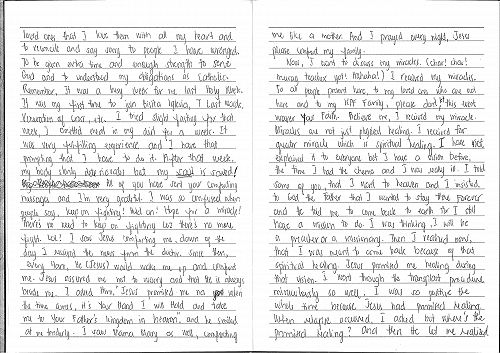 loved ones that I love them with all my heart and
to reconcile and say sorry to people I have wronged.
To be given extra time and enough strength to serve
God and to understand my obligations as Catholic.
Remember, it was a busy week for me last Holy Week.
It was my first time to join Visita Iglesia, 7 Last Words,
etc. I tried slight fasting for that
week, I omitted meat in my diet for a week. It
was very fulfilling experience and I have that
prompting that I have to do it. After that week,
my body slowly but my soul is saved!
All of you have sent your comforting
messages and I'm very grateful. I was so confused when
people say, keep on fighting! Hold on! Hope for a miracle!
There's no need to keep on fighting coz there's no more
fight. I saw Jesus comforting me, dawn of the
day I received the news from the doctor. Since then,
every dawn, He (Jesus) would wake me up and comfort
me. Jesus assured me not to worry and that He is always
beside me. I asked Him, "Jesus promised me that when
the time comes, it's Your Hand I will hold and take
me to Your Father's kingdom in heaven", and he smiled
at me tenderly. I saw Mama Mary as well, comforting
me like a mother. And I prayed every night, Jesus
please comfort my family.
Now, I want to discuss my miracles. (char! char!
teacher yot! hahaha!) I received my miracles.
To all people present here, to my loved ones who are not
here and to my KPF Family, please don't let this event
waver Your Faith. Believe me, I received my miracle.
Miracles are not just physical healing. I received far
greater miracle which is spiritual healing. I have not
explained it to everyone but I have a vision before,
the time I had the chemo and I was really ill. I told
some of you, that I went to heaven and I insisted
to God the Father that I wanted to stay there forever
and He told me to come back to earth for I still
have a mission to do. I was thinking, I will be
a preacher or a missionary. Then I realized now,
that I was meant to come back because of that
spiritual healing. Jesus promised me healing during
that vision. I went through the transplant procedure
miraculously so well. I was so positive the
whole time because Jesus had promised healing.
When relapse occurred, I asked but where's the
promised healing? And then He let me realized